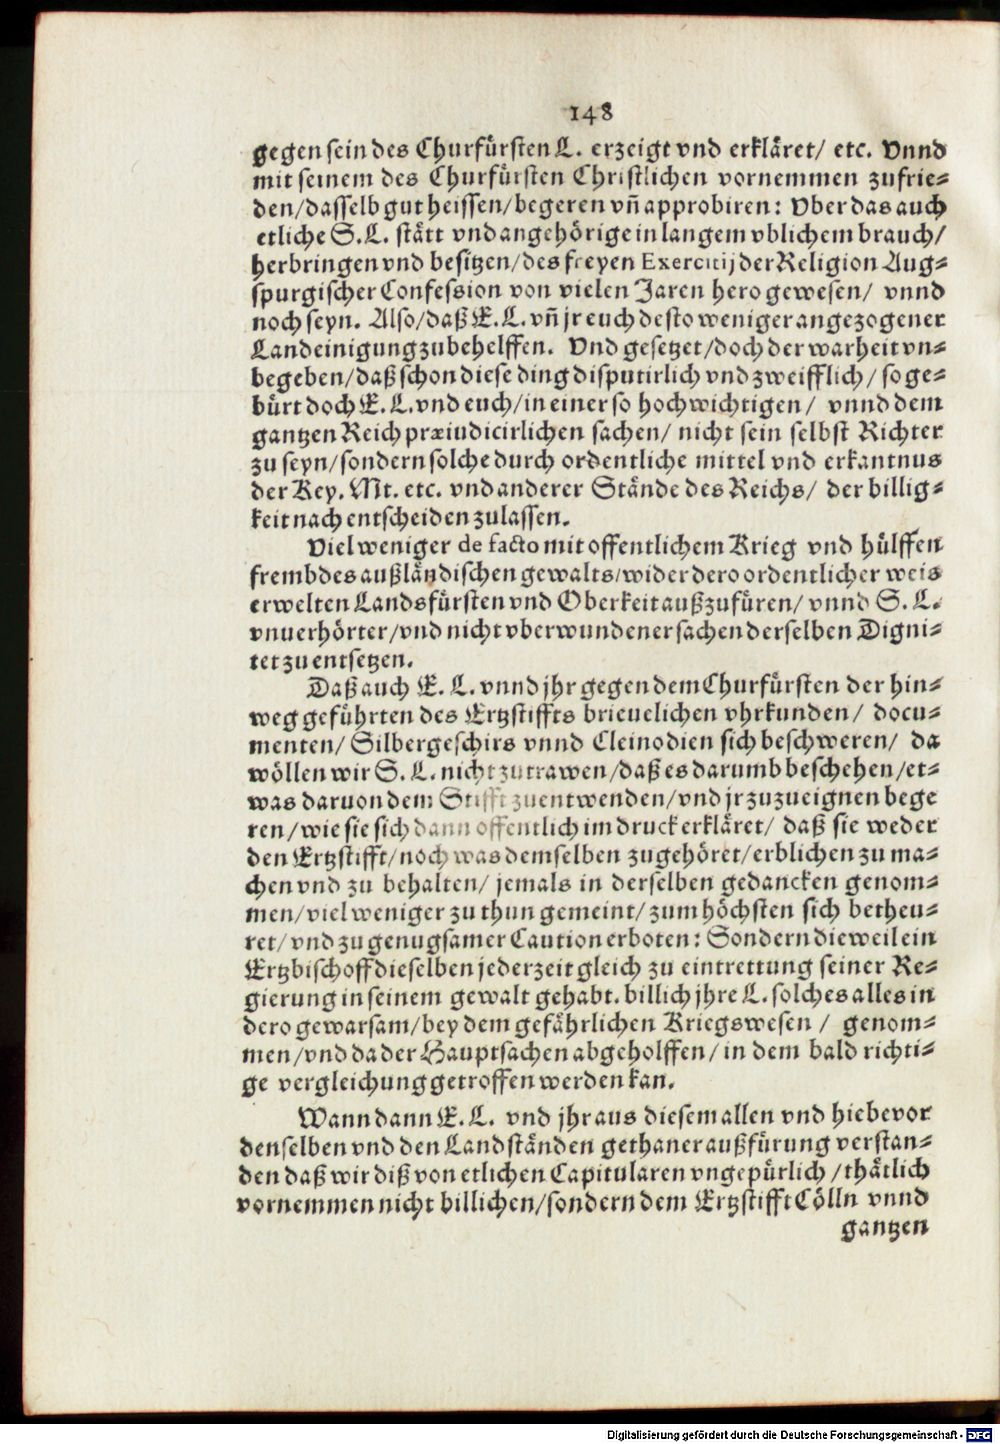 148
gegen sein des Churfürsten L. erzeigt vnd erkläret/ etc. Vnnd
mit seinem des Churfürsten Christlichen vornemmen zufrie=
den/dasselb gut heissen/begeren vñ approbiren: Vber das auch
etliche S.L. stätt vnd angehörige in langem vblichem brauch/
herbringen vnd besitzen/des freyen Exercitij der Religion Aug=
spurgischer Confession von vielen Jaren hero gewesen/ vnnd
noch seyn. Also/daß E.L. vñ jr euch desto weniger angezogener
Landeinigung zubehelffen. Vnd gesetzet/doch der warheit vn=
begeben/daß schon diese ding disputirlich vnd zweifflich/ so ge=
bürt doch E.L. vnd euch/in einer so hochwichtigen/ vnnd dem
gantzen Reich præiudicirlichen sachen/ nicht sein selbst Richter
zu seyn/sondern solche durch ordentliche mittel vnd erkantnus
der Key. Mt. etc. vnd anderer Stände des Reichs/ der billig=
keit nach entscheiden zulassen.
Viel weniger de facto mit offentlichem Krieg vnd hülffen
frembdes außländischen gewalts/wider dero ordentlicher weis
erwelten Landsfürsten vnd Oberkeit außzufüren/ vnnd S. L.
vnuerhörter/vnd nicht vberwundener sachen derselben Digni=
tet zu entsetzen.
Daß auch E. L. vnnd jhr gegen dem Churfürsten der hin=
weg geführten des Ertzstiffts brieuelichen vhrkunden/ docu=
menten/ Silbergeschirs vnnd Cleinodien sich beschweren/ da
wöllen wir S. L. nicht zutrawen/daß es darumb beschehen/et=
was daruon dem Stifft zuentwenden/vnd jr zuzueignen bege
ren/wie sie sich dann offentlich im druck erkläret/ daß sie weder
den Ertzstifft/noch was demselben zugehöret/erblichen zu ma=
chen vnd zu behalten/ jemals in derselben gedancken genom=
men/viel weniger zu thun gemeint/zum höchsten sich betheu=
ret/vnd zu genugsamer Caution erboten: Sondern dieweil ein
Ertzbischoff dieselben jederzeit gleich zu eintrettung seiner Re=
gierung in seinem gewalt gehabt. billich jhre L. solches alles in
dero gewarsam/bey dem gefährlichen Kriegswesen / genom=
men/vnd da der Hauptsachen abgeholffen/in dem bald richti=
ge vergleichung getroffen werden kan.
Wann dann E.L. vnd jhr aus diesem allen vnd hiebevor
denselben vnd den Landständen gethaner außfürung verstan=
den daß wir diß von etlichen Capitularen vngepürlich/thätlich
vornemmen nicht billichen/sondern dem Ertzstifft Cölln vnnd
gantzen
Digitalisierung gefördert durch die Deutsche Forschungsgemeinschaft - DFG